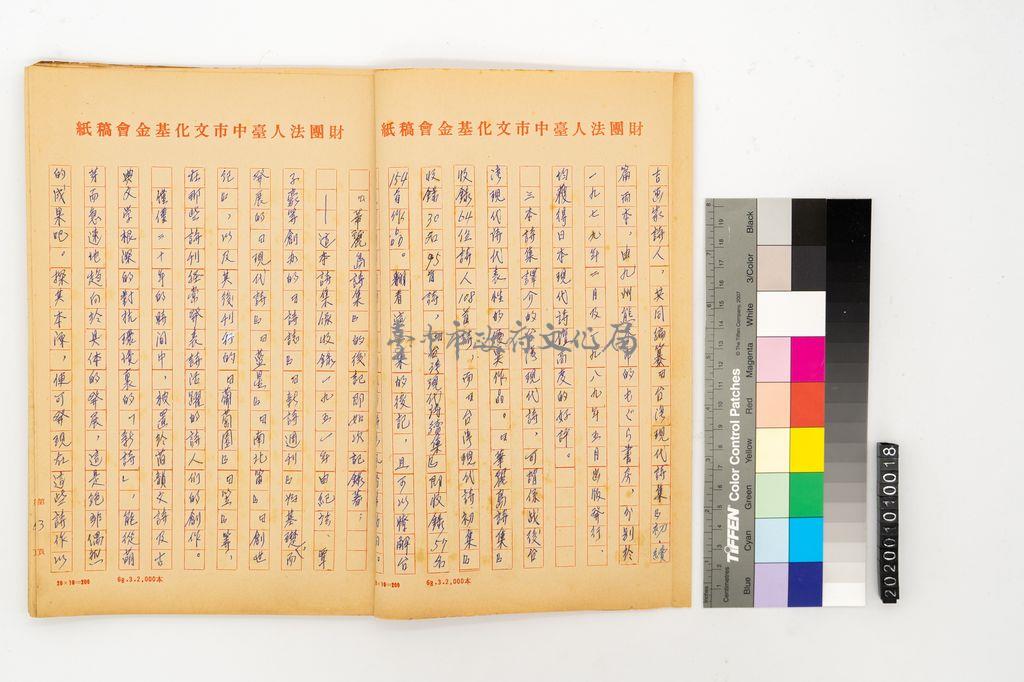 財團法人臺中市文化基金會稿紙
古西歐詩人，共同編纂《台灣現代詩集》初、續
篇兩本，由九州熊本的もぐら書房，分別於
一九七九年二月及一九八九年五月出版發行，
均獲得日本現代詩壇高度的好評。
三本詩集譯介的台灣現代詩，可謂係戰後台
灣現代詩代表性的優秀作品。《華麗島詩集》
收錄64位詩人108首詩，而《台灣現代詩初集》
收錄30名95首詩，《台灣現代詩續集》則收錄59名
154首作品。翻看這三集的後記，
《華麗島詩集》的後記即如次記錄著：
——這本詩集係收錄一九五一年由紀弦、覃
子豪等創办的《詩誌》《新詩週刊》为基礎而
發展的《現代詩》《藍星》《南北笛》《創世
紀》，以及其後刊行的《葡萄園》《笠》等，
在那些詩刊經常發表詩活躍的詩人們的創作。
僅僅二十年的時間中，被置於舊韻文詩及古
典文學根深的對抗環境裏的「新詩」，能從萌
芽而急速地趨向於具体的發展，這是絕非偶然
的成果吧。探其本陳，便可發現在這些詩作以
第 43 頁
20×10=200
6g.3.2,000本
財團法人臺中市文化基金會稿紙
6g.3.2,000本
臺中市政府文化局
TIFFEN Color Control Patches
© The Tiffen Company, 2007
Centimetres
Inches
Blue
Cyan
Green
Yellow
Red
Magenta
White
3/Color
Black
202001010018